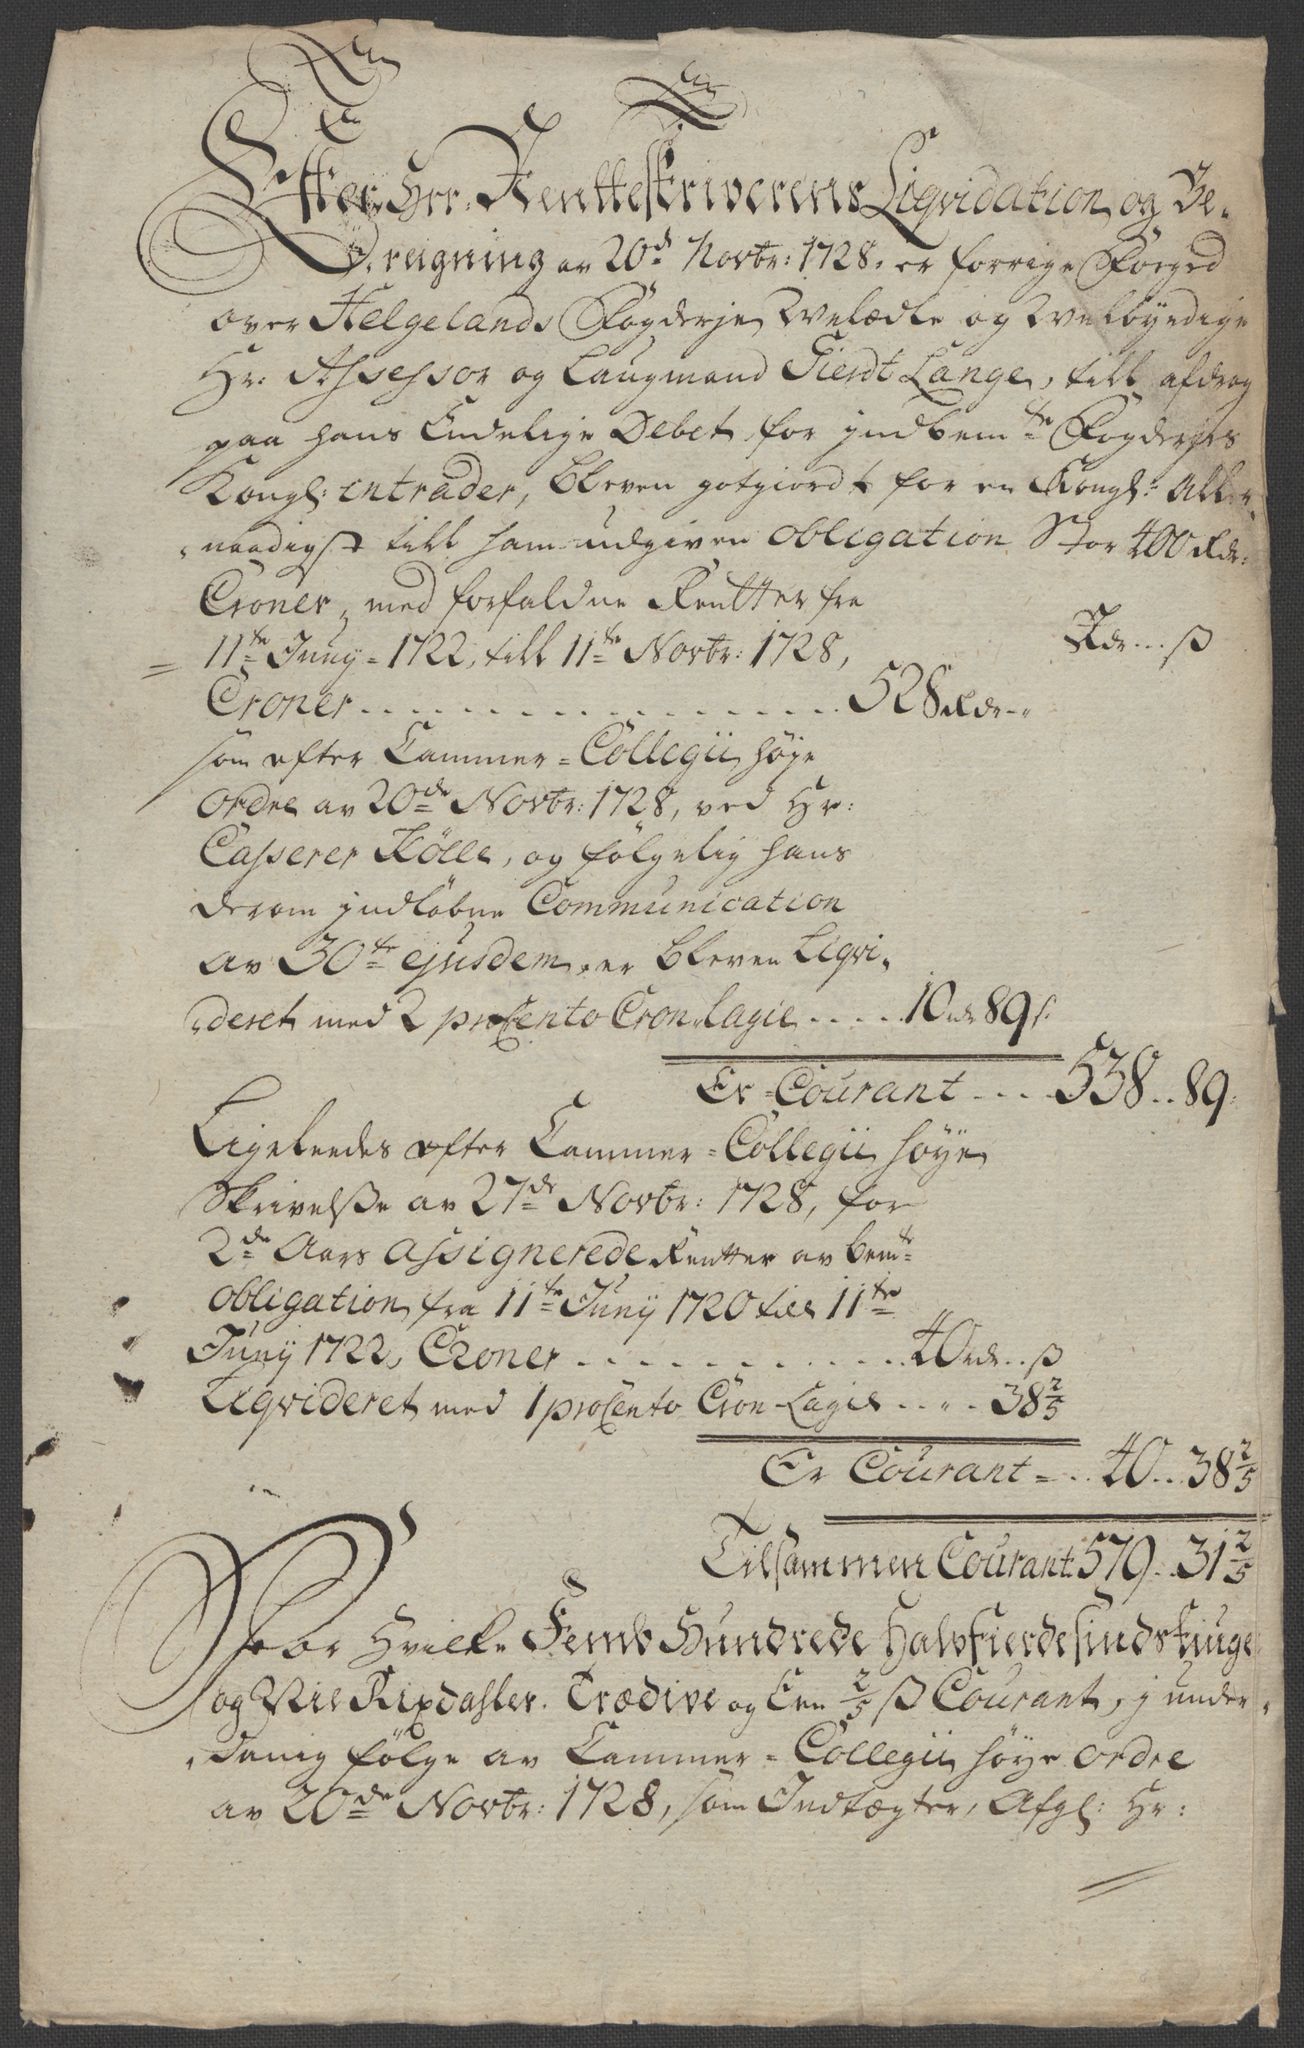 Effter Hrr. Rentteskriverens Liqvidation og Be-
reigning av 20d. Novbr: 1728. er forrige Foeged
over Helgelands Fogderje Welædle og Welbyrdige
Hr: Assessor og Laugmand Gierdt Lange, till afdrag
paa hans Endelige Debet for jndbemte Fogderjes
Kongl: intrader, bleven gotgiordt for en Kongl: Aller-
naadigst till ham udgiven obligation stor 400 Rdr:
Croner, med forfaldne Rentter fra
11te Juny 1722, till 11te Novbr: 1728,
Rdr...ß
Croner . . . . . . 528 Rdr..
som efter Cammer-Collegii høye
ordre av 20de Novbr: 1728, ved Hr:
Casserer Kølle, og følgelig hans
derom jndløbne Communication
av 30te ejusdem, er bleven Liqvi-
deret med 2 proCento Cron Lagie . . . . 10 rdr 89 s:
Er Courant . . . . 538 .. 89:
Ligeleedes efter Cammer-Collegii høye
Skrivelsse av 27de Novbr: 1728, for
2de Aars assignerede Rentter av bemte
obligation, fra 11te Junij 1720 till 11te
Junij 1722, Croner . . . . . . 40 rdr..ß
Liqvideret med 1 proCento Cron Lagie . . „ . 38 2/5
Er Courant . . 40 .. 38 2/5
Tilsammen Courant 579 .. 31 2/5
For Hvilke Femb Hundrede Halvfierdesindstiuge
og Nie Rixdahler. Trædive og Een 2/5 ß Courant, j under-
danig følge av Cammer-Collegii høye ordre
av 20de Novbr: 1728, som Indtægter, Afgl: Hr: